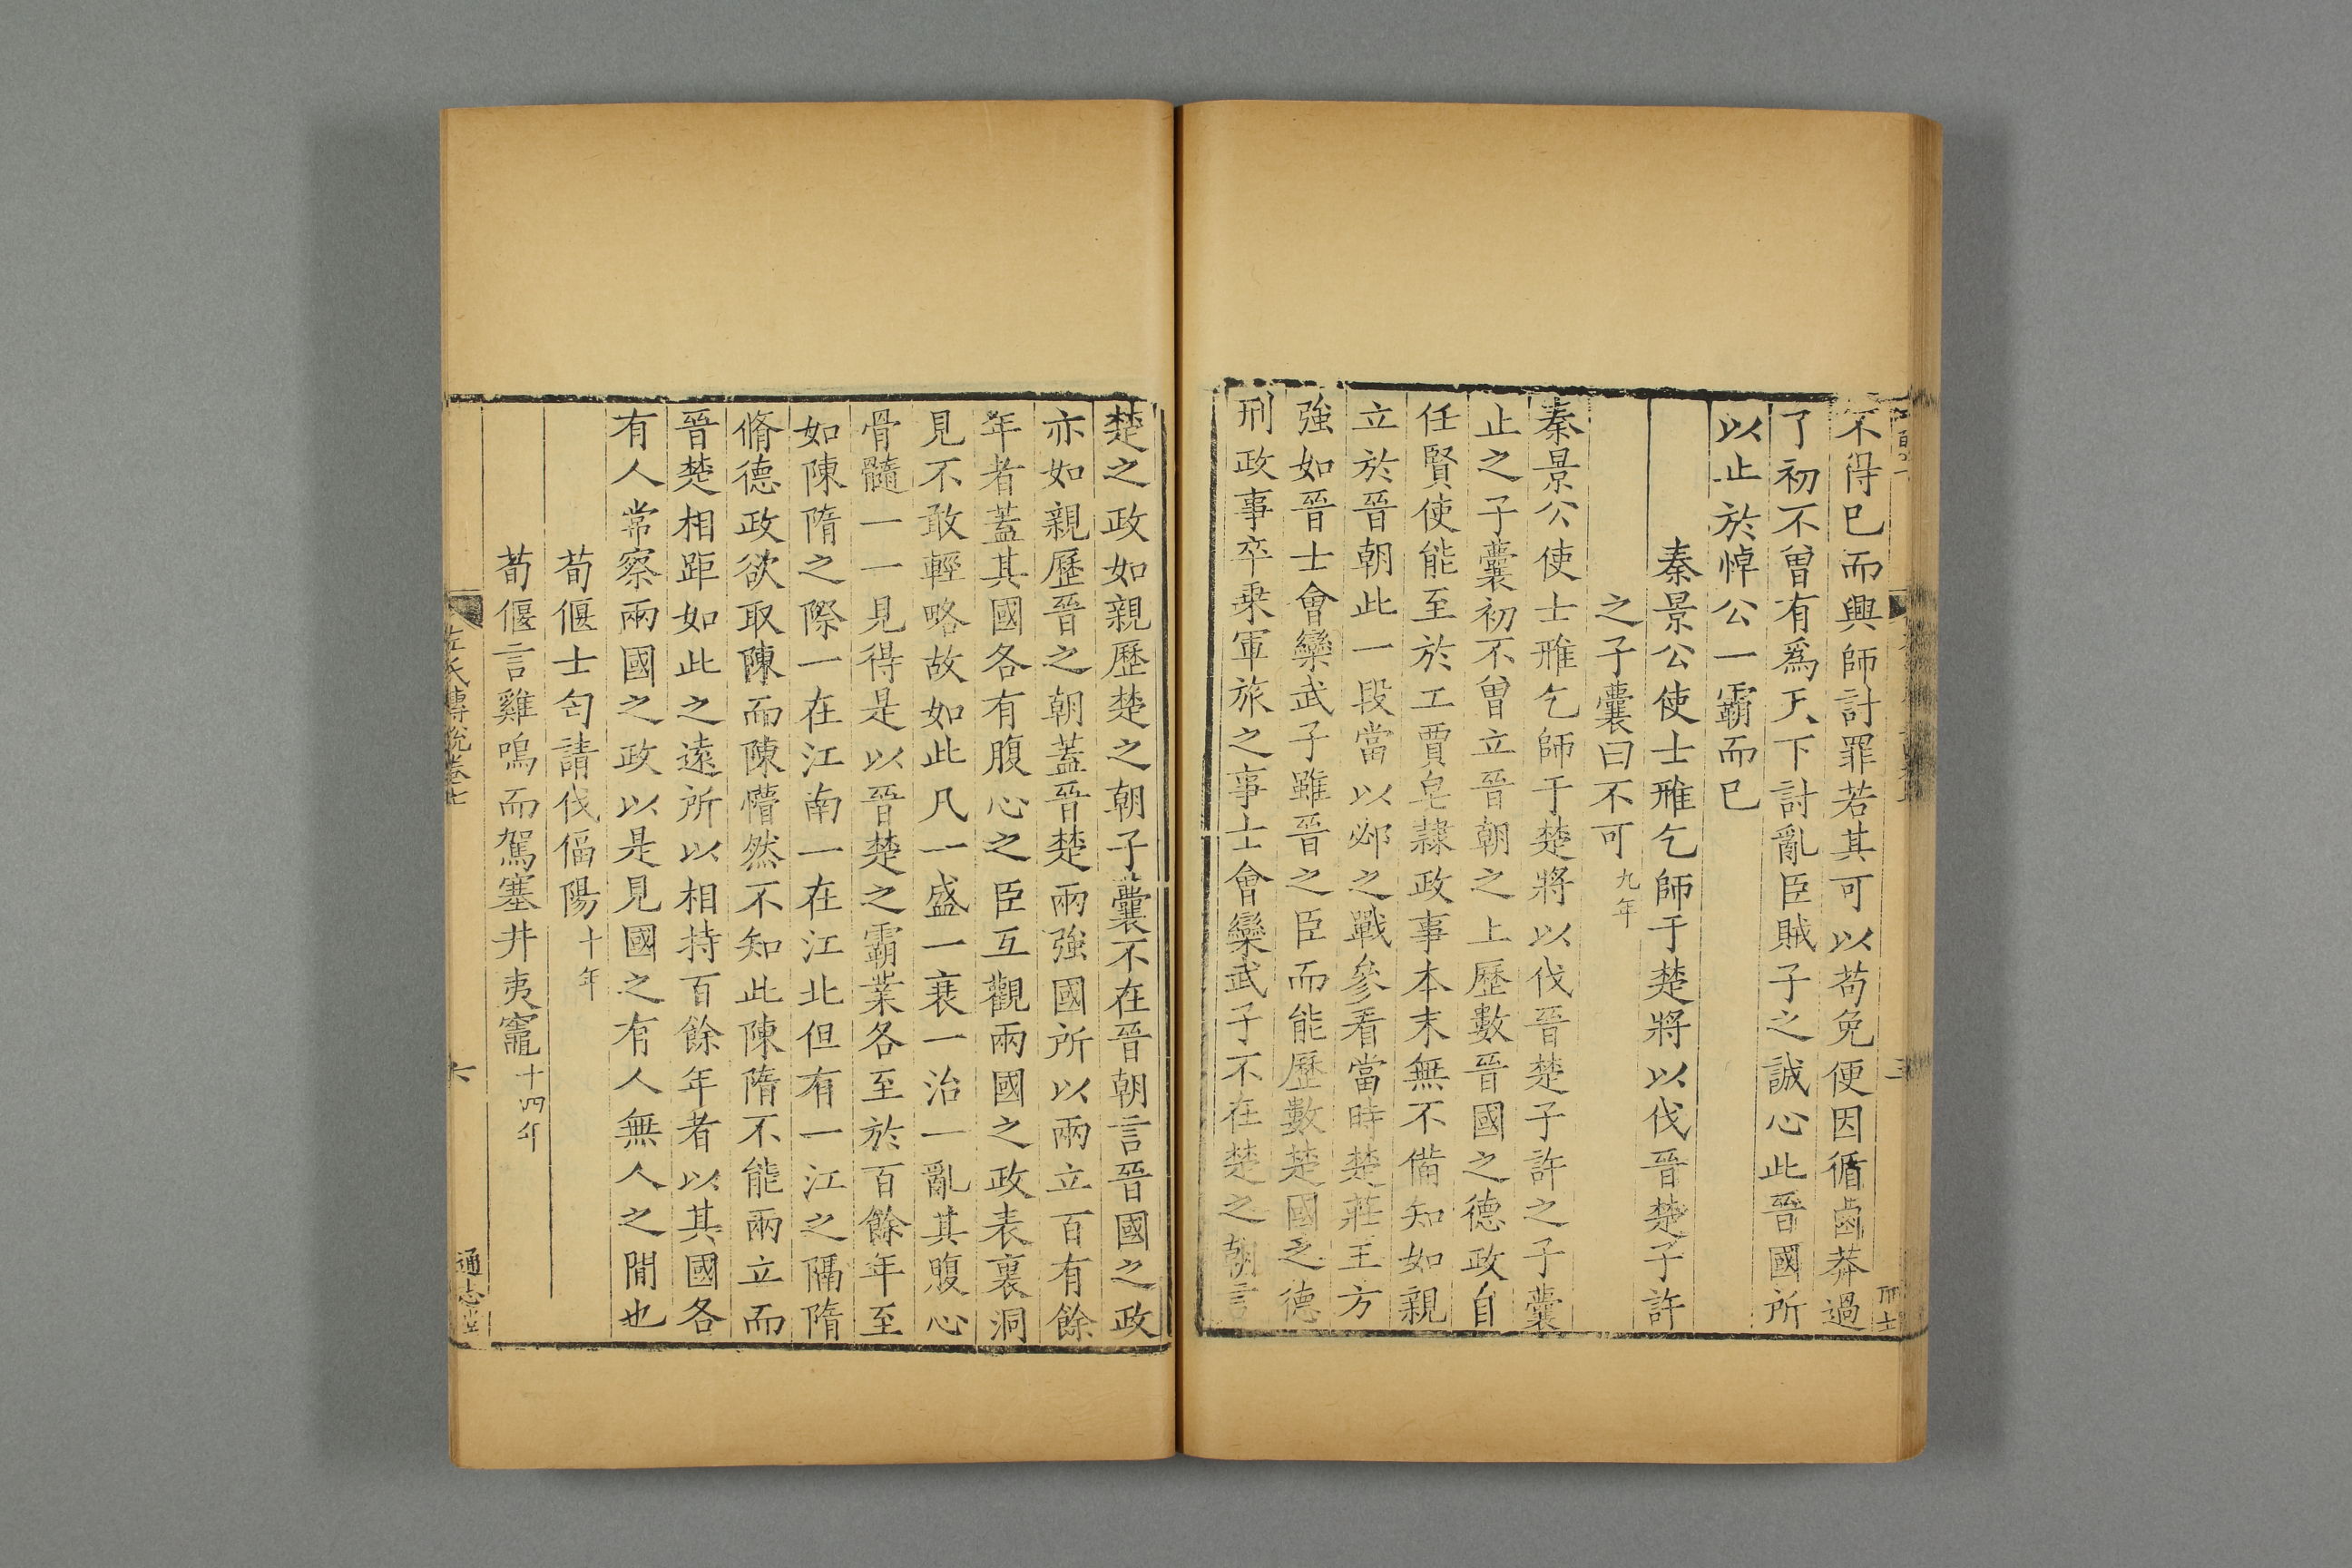 不得已而興師討罪若其可以苟免便因循鹵莽過
了初不曾有爲天下討亂臣賊子之誠心此晉國所
以止於悼公一霸而已
秦景公使士雃乞師于楚將以伐晉楚子許
之子囊曰不可九年
秦景公使士雃乞師于楚將以伐晉楚子許之子囊
止之子囊初不曾立晉朝之上歷數晉國之德政自
任賢使能至於工賈皂隷政事本末無不備知如親
立於晉朝此一段當以邲之戰參看當時楚莊王方
強如晉士會欒武子雖晉之臣而能歷數楚國之德
刑政事卒乗軍旅之事士會欒武子不在楚之朝言
楚之政如親歷楚之朝子囊不在晉朝言晉國之政
亦如親歷晉之朝蓋晉楚兩強國所以兩立百有餘
年者蓋其國各有腹心之臣互觀兩國之政表裏洞
見不敢輕略故如此凡一盛一衰一治一亂其腹心
骨髓一一見得是以晉楚之霸業各至於百餘年至
如陳隋之際一在江南一在江北但有一江之隔隋
脩德政欲取陳而陳懵然不知此陳隋不能兩立而
晉楚相距如此之遠所以相持百餘年者以其國各
有人常察兩國之政以是見國之有人無人之閒也
荀偃士匄請伐偪陽十年
荀偃言雞鳴而駕塞井夷竈十四年
左氏傳說卷七
六
通志堂